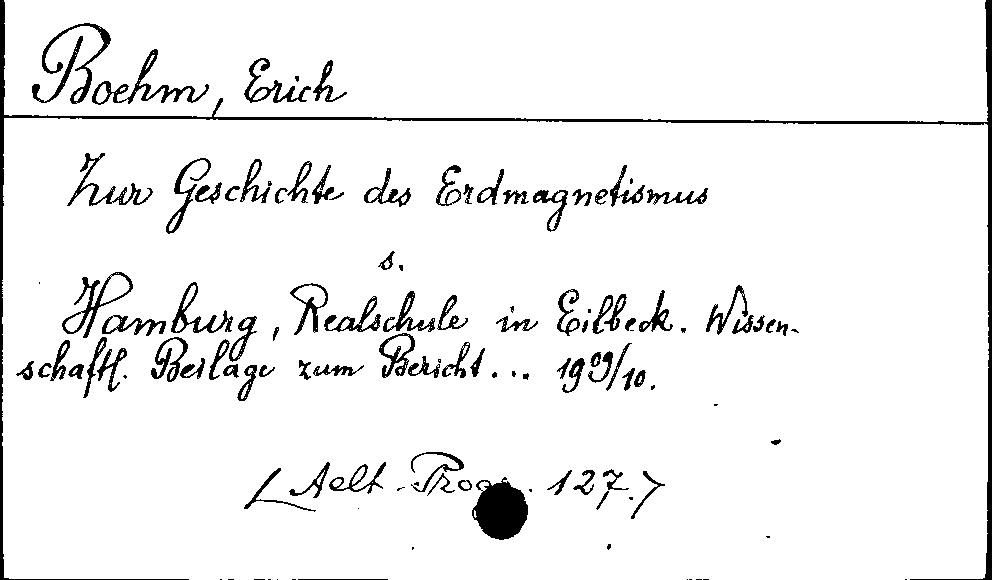 Boehm, Erich
Zur Geschichte des Erdmagnetismus
s.
Hamburg, Realschule in Eilbeck. Wissen-
schaftl. Beilage zum Bericht... 1909/10.
Aelt. Progr. 127.